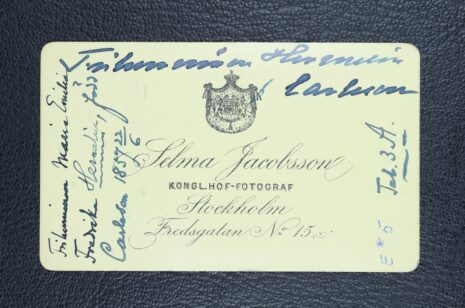 Friherrinnan Hermelin
Carlsson
Selma Jacobsson
KONGL. HOF-FOTOGRAF
Stockholm
Fredsgatan No 15.
Friherrinnan Maria Emilia
Fredrik Hermelin, född
Carlsson 1857 22/6
Tab 3 A.
E * 5